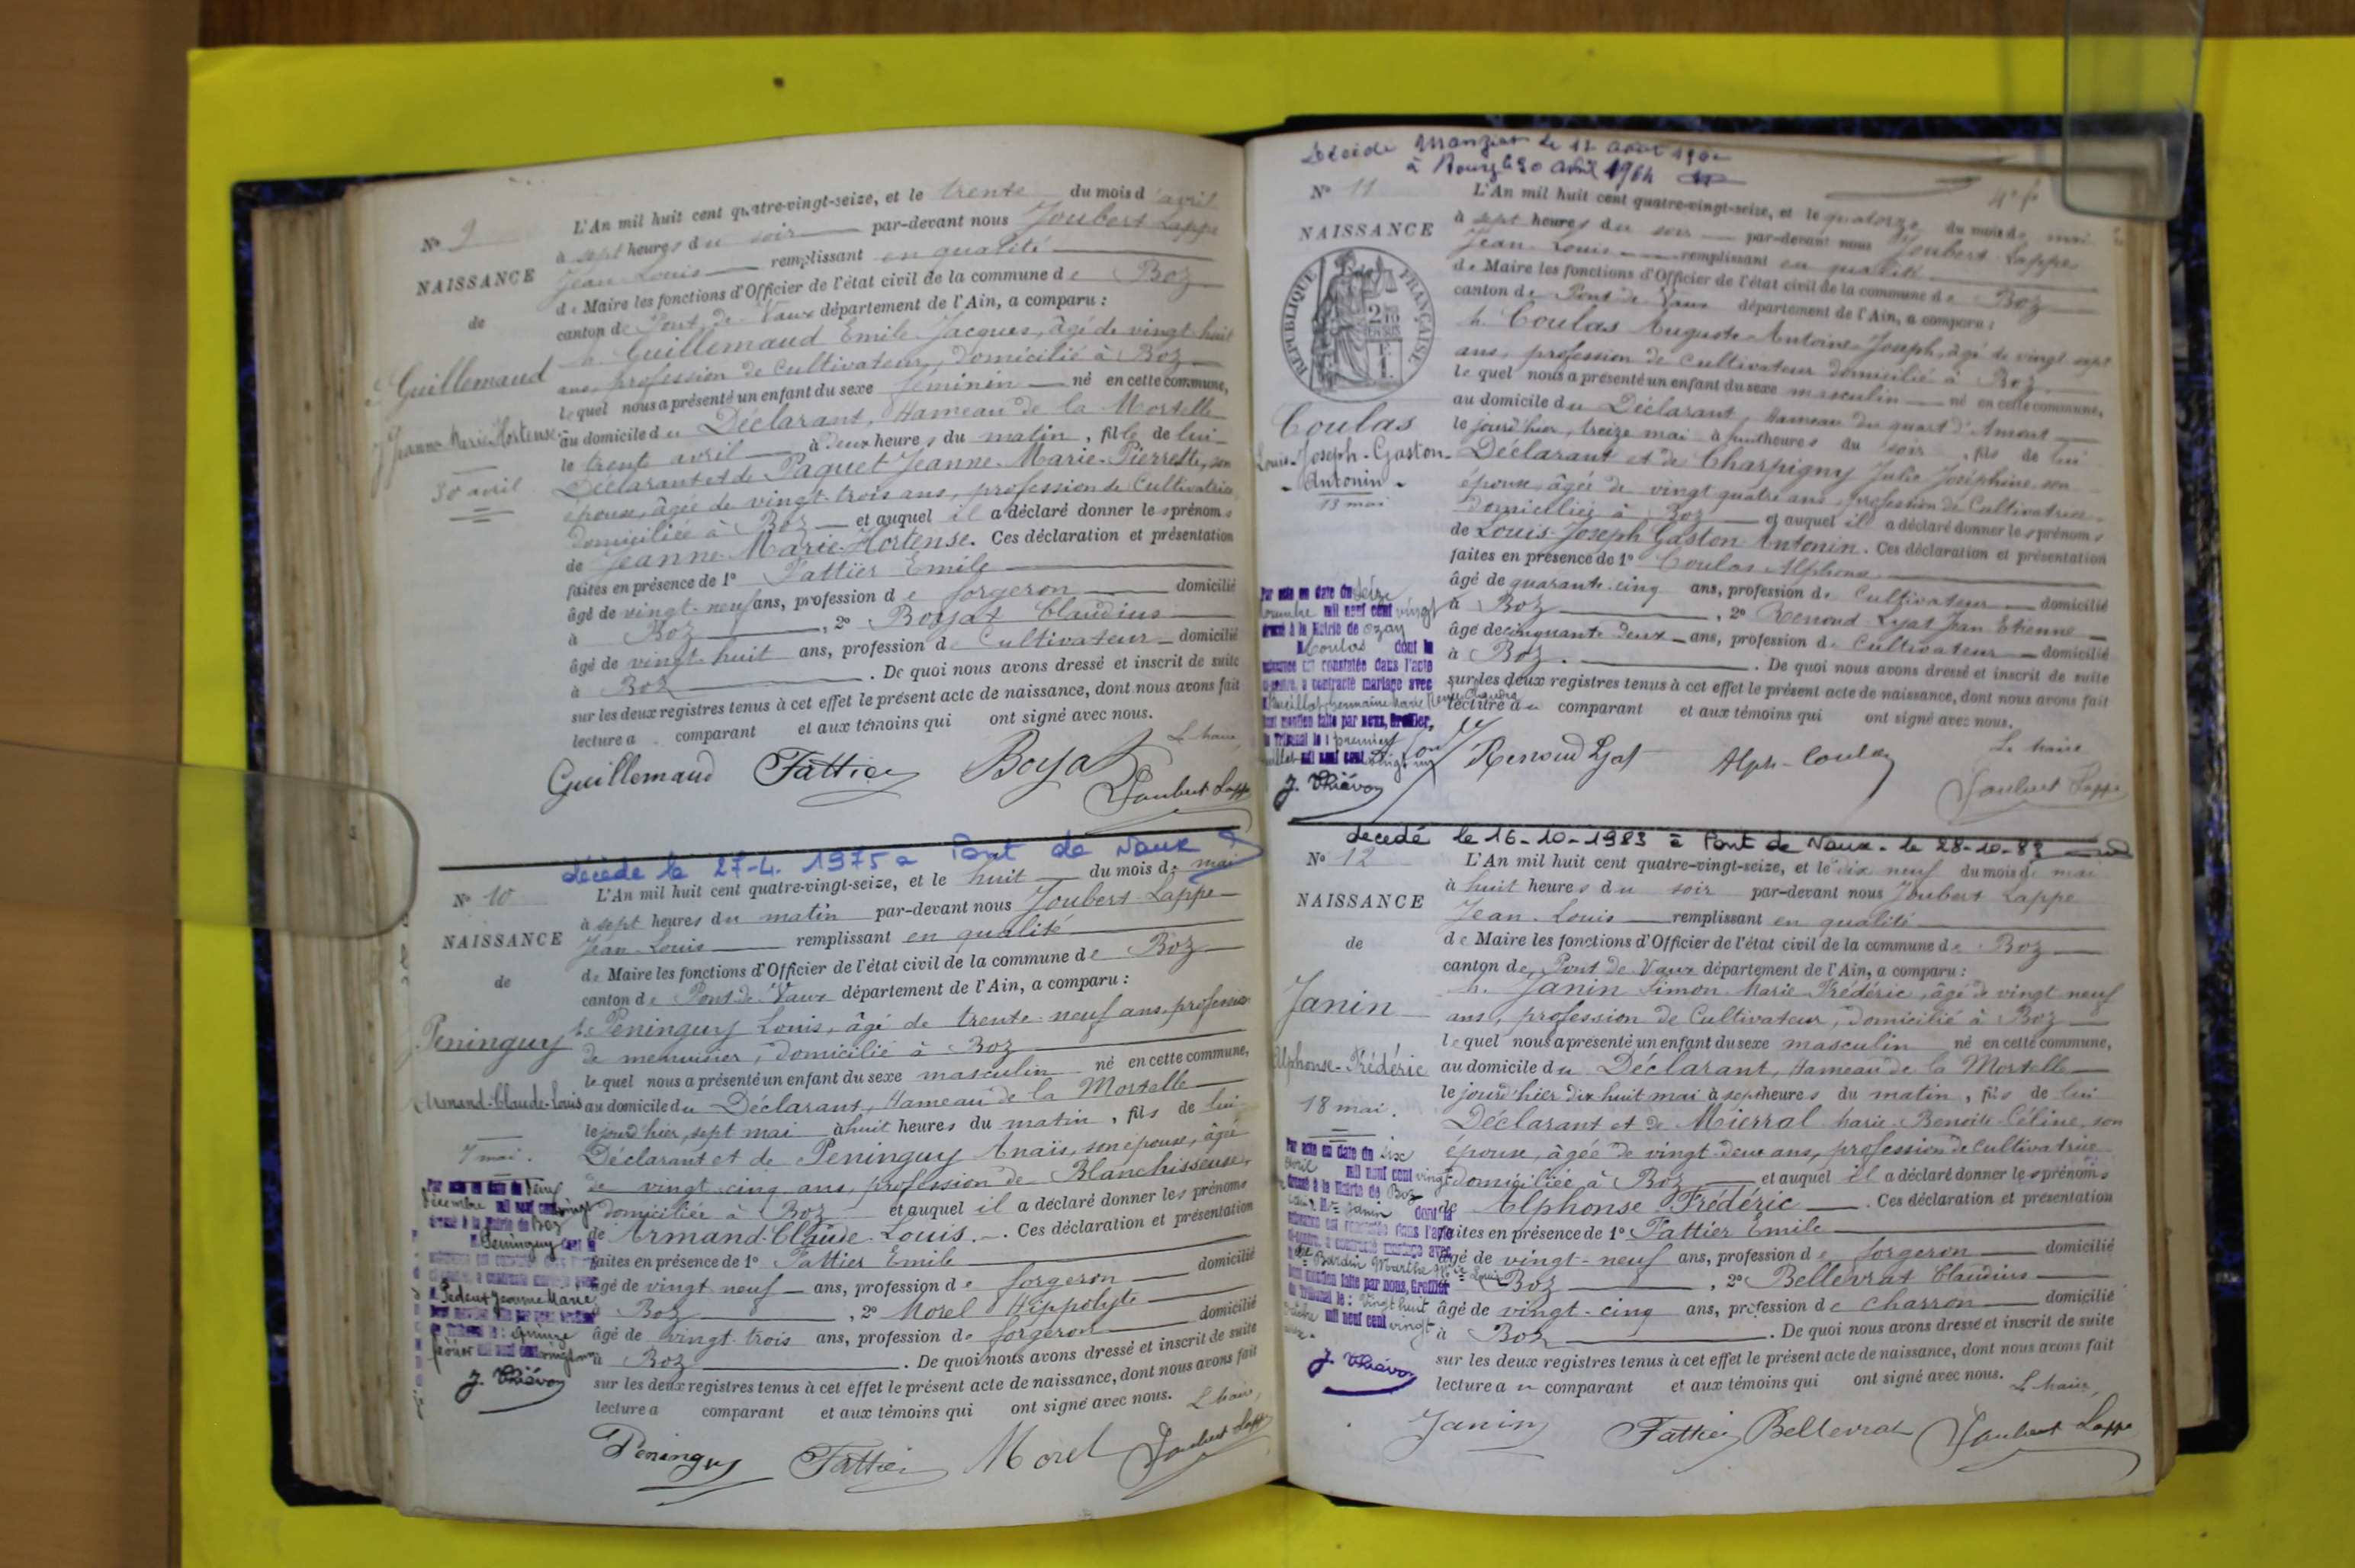 N° 9
NAISSANCE
de
Guillemaud
Jeanne-Marie-Hortense
30 avril
L'An mil huit cent quatre-vingt-seize, et le trente du mois d'avril
à sept heures du soir par-devant nous Joubert Lappe
Jean Louis remplissant en qualité
de Maire les fonctions d'Officier de l'état civil de la commune de Boz
canton de Pont de Vaux département de l'Ain, a comparu :
Guillemaud Emile Jacques, âgé de vingt huit
ans, profession de Cultivateur, domicilié à Boz
lequel nous a présenté un enfant du sexe féminin né en cette commune,
au domicile du Déclarant, Hameau de la Mortelle
le trente avril à deux heures du matin, fille de lui
Déclarant et de Paquet Jeanne-Marie-Pierrette, son
épouse, âgée de vingt-trois ans, profession de Cultivatrice,
domiciliée à Boz et auquel il a déclaré donner les prénoms
de Jeanne-Marie-Hortense. Ces déclaration et présentation
faites en présence de 1° Fattier Emile
âgé de vingt-neuf ans, profession de forgeron domicilié
à Boz, 2° Boyat Claudius
âgé de vingt-huit ans, profession de Cultivateur domicilié
à Boz. De quoi nous avons dressé et inscrit de suite
sur les deux registres tenus à cet effet le présent acte de naissance, dont nous avons fait
lecture a comparant et aux témoins qui ont signé avec nous.
Le Maire,
Guillemaud Fattier Boyat Joubert Lappe
décédé le 27-4. 1975 a Pont de Vaux
N° 10
NAISSANCE
de
Peninguy
Armand-Claude-Louis
7 mai.
L'An mil huit cent quatre-vingt-seize, et le huit du mois de mai
à sept heures du matin par-devant nous Joubert Lappe
Jean Louis remplissant en qualité
de Maire les fonctions d'Officier de l'état civil de la commune de Boz
canton de Pont de Vaux département de l'Ain, a comparu :
Peninguy Louis, âgé de trente-neuf ans, profession
de menuisier, domicilié à Boz
lequel nous a présenté un enfant du sexe masculin né en cette commune,
au domicile du Déclarant, Hameau de la Mortelle
le jourd'hier, sept mai à huit heures du matin, fils de lui
Déclarant et de Peninguy Anaïs, son épouse, âgée
de vingt cinq ans, profession de Blanchisseuse,
domiciliée à Boz et auquel il a déclaré donner les prénoms
de Armand-Claude-Louis. Ces déclaration et présentation
faites en présence de 1° Fattier Emile
âgé de vingt neuf ans, profession de forgeron domicilié
à Boz, 2° Morel Hippolyte
âgé de vingt-trois ans, profession de forgeron domicilié
à Boz. De quoi nous avons dressé et inscrit de suite
sur les deux registres tenus à cet effet le présent acte de naissance, dont nous avons fait
lecture a comparant et aux témoins qui ont signé avec nous.
Le Maire,
J. Thiévon
Peninguy Fattier Morel Joubert Lappe
à Bourg le 30 avril 1964
N° 11
NAISSANCE
RÉPUBLIQUE FRANÇAISE
Coulas
Louis-Joseph-Gaston-
Antonin
13 mai
L'An mil huit cent quatre-vingt-seize, et le quatorze du mois de mai
à sept heures du soir par-devant nous Joubert Lappe
Jean-Louis remplissant en qualité
de Maire les fonctions d'Officier de l'état civil de la commune de Boz
canton de Pont de Vaux département de l'Ain, a comparu :
Coulas Auguste-Antoine-Joseph, âgé de vingt sept
ans, profession de Cultivateur domicilié à Boz
lequel nous a présenté un enfant du sexe masculin né en cette commune,
au domicile du Déclarant, Hameau du quart d'Amont
le jourd'hier, treize mai à heures du soir, fils de lui
Déclarant et de Charpigny Julie Joséphine son
épouse, âgée de vingt quatre ans, profession de Cultivatrice
domiciliée à Boz et auquel il a déclaré donner les prénoms
de Louis-Joseph Gaston Antonin. Ces déclaration et présentation
faites en présence de 1° Coulas Alphonse
âgé de quarante-cinq ans, profession de Cultivateur domicilié
à Boz, 2° Renoud Lyat Jean Etienne
âgé de cinquante deux ans, profession de Cultivateur domicilié
à Boz. De quoi nous avons dressé et inscrit de suite
sur les deux registres tenus à cet effet le présent acte de naissance, dont nous avons fait
lecture au comparant et aux témoins qui ont signé avec nous.
Le Maire
J. Thiévon
Renoud Lyat Alph. Coulas Joubert Lappe
décédé le 16-10-1983 à Pont de Vaux - le 28-10-83
N° 12
NAISSANCE
de
Janin
Alphonse-Frédéric
18 mai.
L'An mil huit cent quatre-vingt-seize, et le dix neuf du mois de mai
à huit heures du soir par-devant nous Joubert Lappe
Jean-Louis remplissant en qualité
de Maire les fonctions d'Officier de l'état civil de la commune de Boz
canton de Pont de Vaux département de l'Ain, a comparu :
Janin Simon Marie Frédéric, âgé de vingt neuf
ans, profession de Cultivateur, domicilié à Boz
lequel nous a présenté un enfant du sexe masculin né en cette commune,
au domicile du Déclarant, Hameau de la Mortelle
le jourd'hier dix huit mai à sept heures du matin, fils de lui
Déclarant et de Mierral Marie-Benoite-Céline, son
épouse, âgée de vingt-deux ans, profession de cultivatrice
domiciliée à Boz et auquel il a déclaré donner les prénoms
de Alphonse Frédéric. Ces déclaration et présentation
faites en présence de 1° Fattier Emile
âgé de vingt-neuf ans, profession de forgeron domicilié
Boz, 2° Bellevrat Claudius
âgé de vingt-cinq ans, profession de charron domicilié
à Boz. De quoi nous avons dressé et inscrit de suite
sur les deux registres tenus à cet effet le présent acte de naissance, dont nous avons fait
lecture au comparant et aux témoins qui ont signé avec nous.
Le Maire,
J. Thiévon
Janin Fattier Bellevrat Joubert Lappe